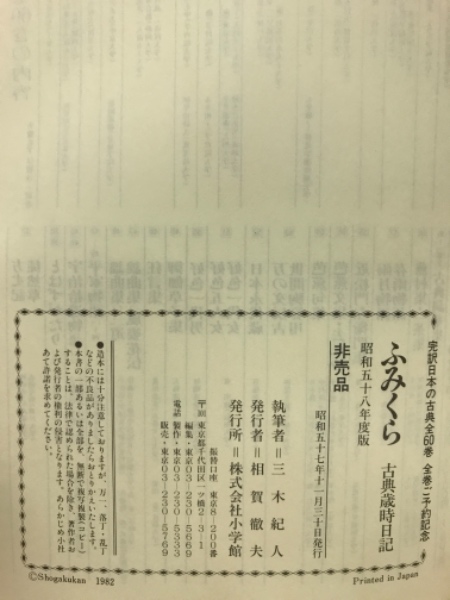 完訳日本の古典全60巻 全巻ご予約記念
ふみくら 古典歳時日記
昭和五十八年度版
非売品
昭和五十七年十一月三十日発行
執筆者＝三木紀人
発行者＝相賀徹夫
発行所＝株式会社小学館
振替口座 東京8-200番
〒101 東京都千代田区一ツ橋2-3-1
編集・東京03-230-5669
電話 製作・東京03-230-5333
販売・東京03-230-5769
●造本には十分注意しておりますが、万一、落丁・乱丁
などの不良品がありましたらおとりかえいたします。
●本書の一部あるいは全部を、無断で複写複製（コピー）
することは、法律で認められた場合を除き、著作者お
よび発行者の権利の侵害となります。あらかじめ小社
あて許諾を求めてください。
©Shogakukan 1982
Printed in Japan